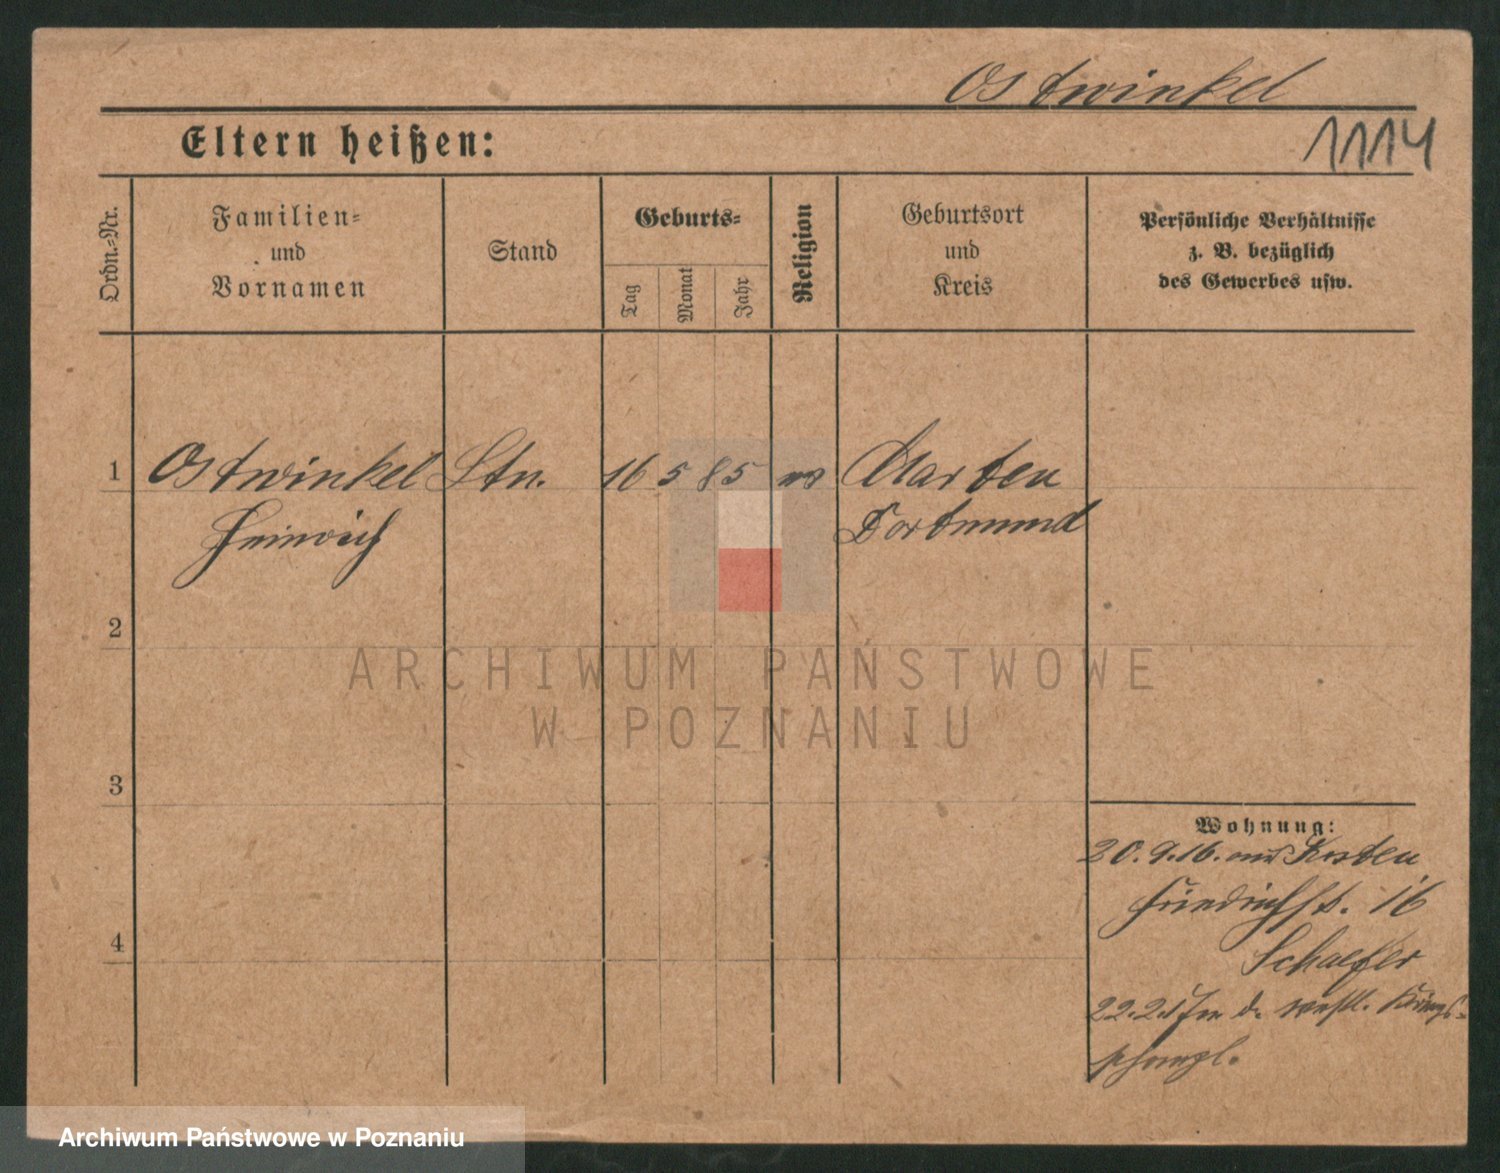 Ostwinkel
Eltern heißen:
1114
Ordn.-Nr.
Familien-
und
Vornamen
Stand
Geburts-
Tag
Monat
Jahr
Religion
Geburtsort
und
Kreis
Persönliche Verhältnisse
z. B. bezüglich
des Gewerbes usw.
1 Ostwinkel Stn. 16 5 85 Marten
Heinrich Dortmund
2
ARCHIWUM PAŃSTWOWE
W POZNANIU
3
Wohnung:
20.9.16. aus Kosten
Friedrichst. 16
4
Schaefer
22.2.17 d. westl. Kriegs-
schaupl.
Archiwum Państwowe w Poznaniu